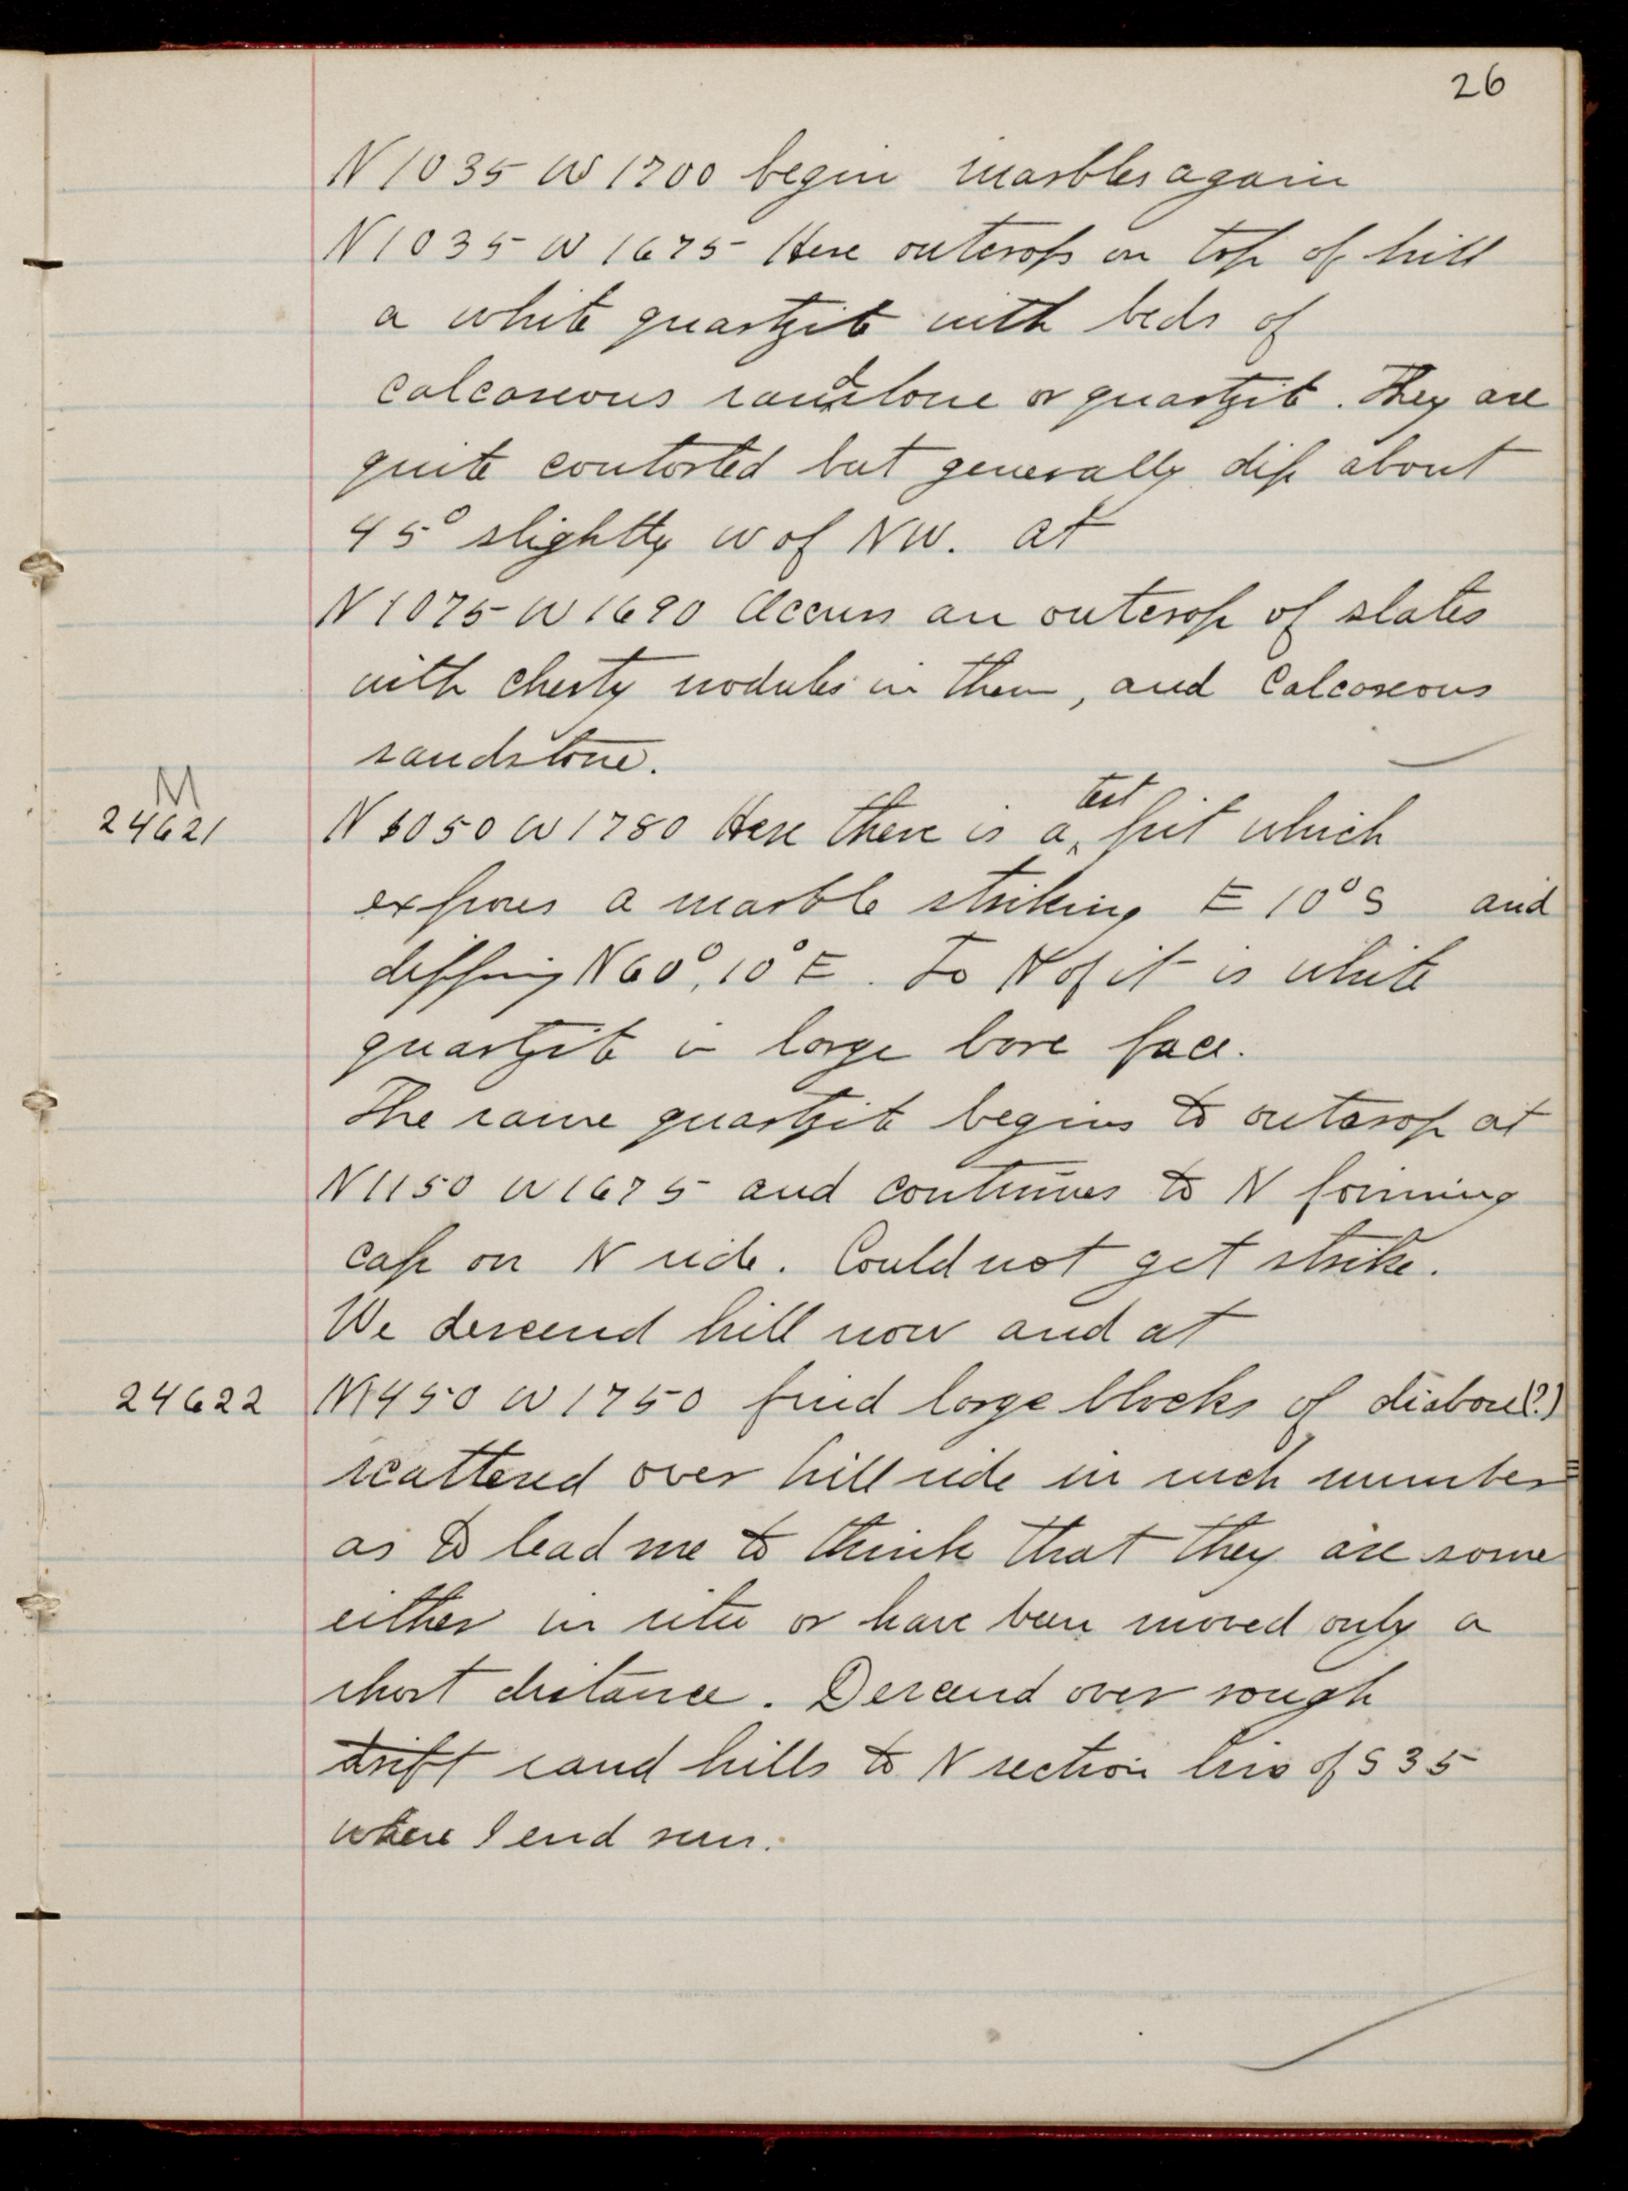 26
N 1035 W 1700 begin marbles again
N 1035 W 1675 Here outcrops on top of hill
a white quartzite with beds of
calcareous sandstone or quartzite. They are
quite contorted but generally dip about
45° slightly W of NW. at
N 1075 W 1690 Occurs an outcrop of slates
with cherty nodules in them, and Calcareous
sandstone.
M
24621
N 1050 W 1780 Here there is a test pit which
exposes a marble striking E 10° S and
dipping N 60°, 10° E. To N of it is white
quartzite in large bare face.
The same quartzite begins to outcrop at
N 1150 W 1675 and continues to N forming
cap on N side. Could not get strike.
We descend hill now and at
24622
N 1450 W 1750 find large blocks of diabase(?)
scattered over hill side in such numbers
as to lead me to think that they are some
either in situ or have been moved only a
short distance. Descend over rough
drift sand hills to N section line of S 35
where I end run.